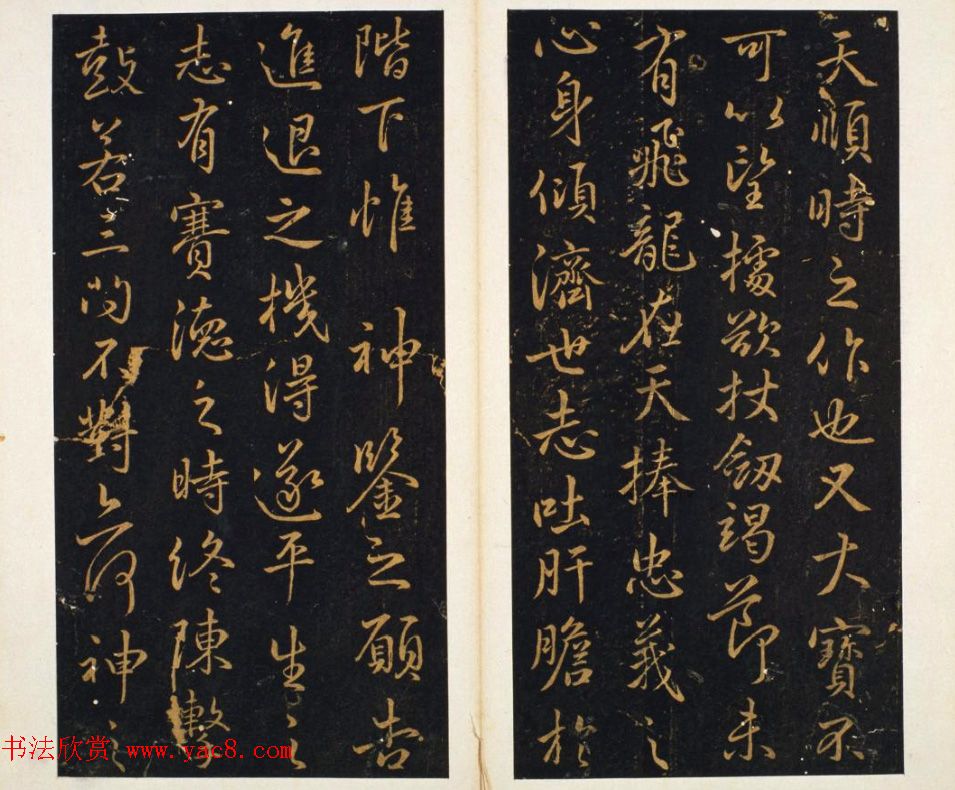 天順時之作也又大寶不
可以望據欲杖劔竭節未
有飛龍在天捧忠義之
心身傾濟世志吐肝膽於
階下惟神鑒之願告
進退之機得遂平生之
志有賽德之時終陳擊
鼓若三問不對亦何神之
书法欣赏 www.yac8.com